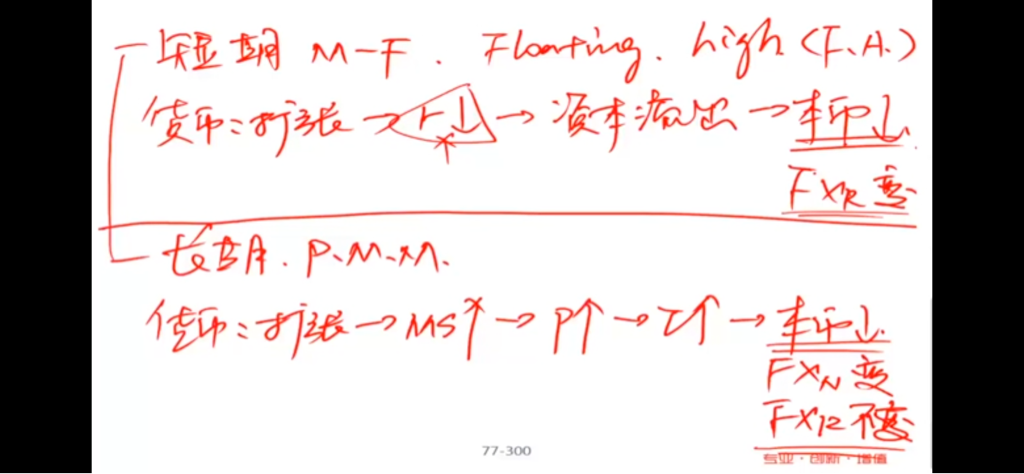 短期 M-F. Floating. high (F.A.)
货币:扩张 → r↓ → 资本流出 → 本币↓
FXR 变
长期. P.M.M.
货币:扩张 → MS↑ → P↑ → π↑ → 本币↓
FXN 变
FXR 不变
77-300
专业·创新·增值